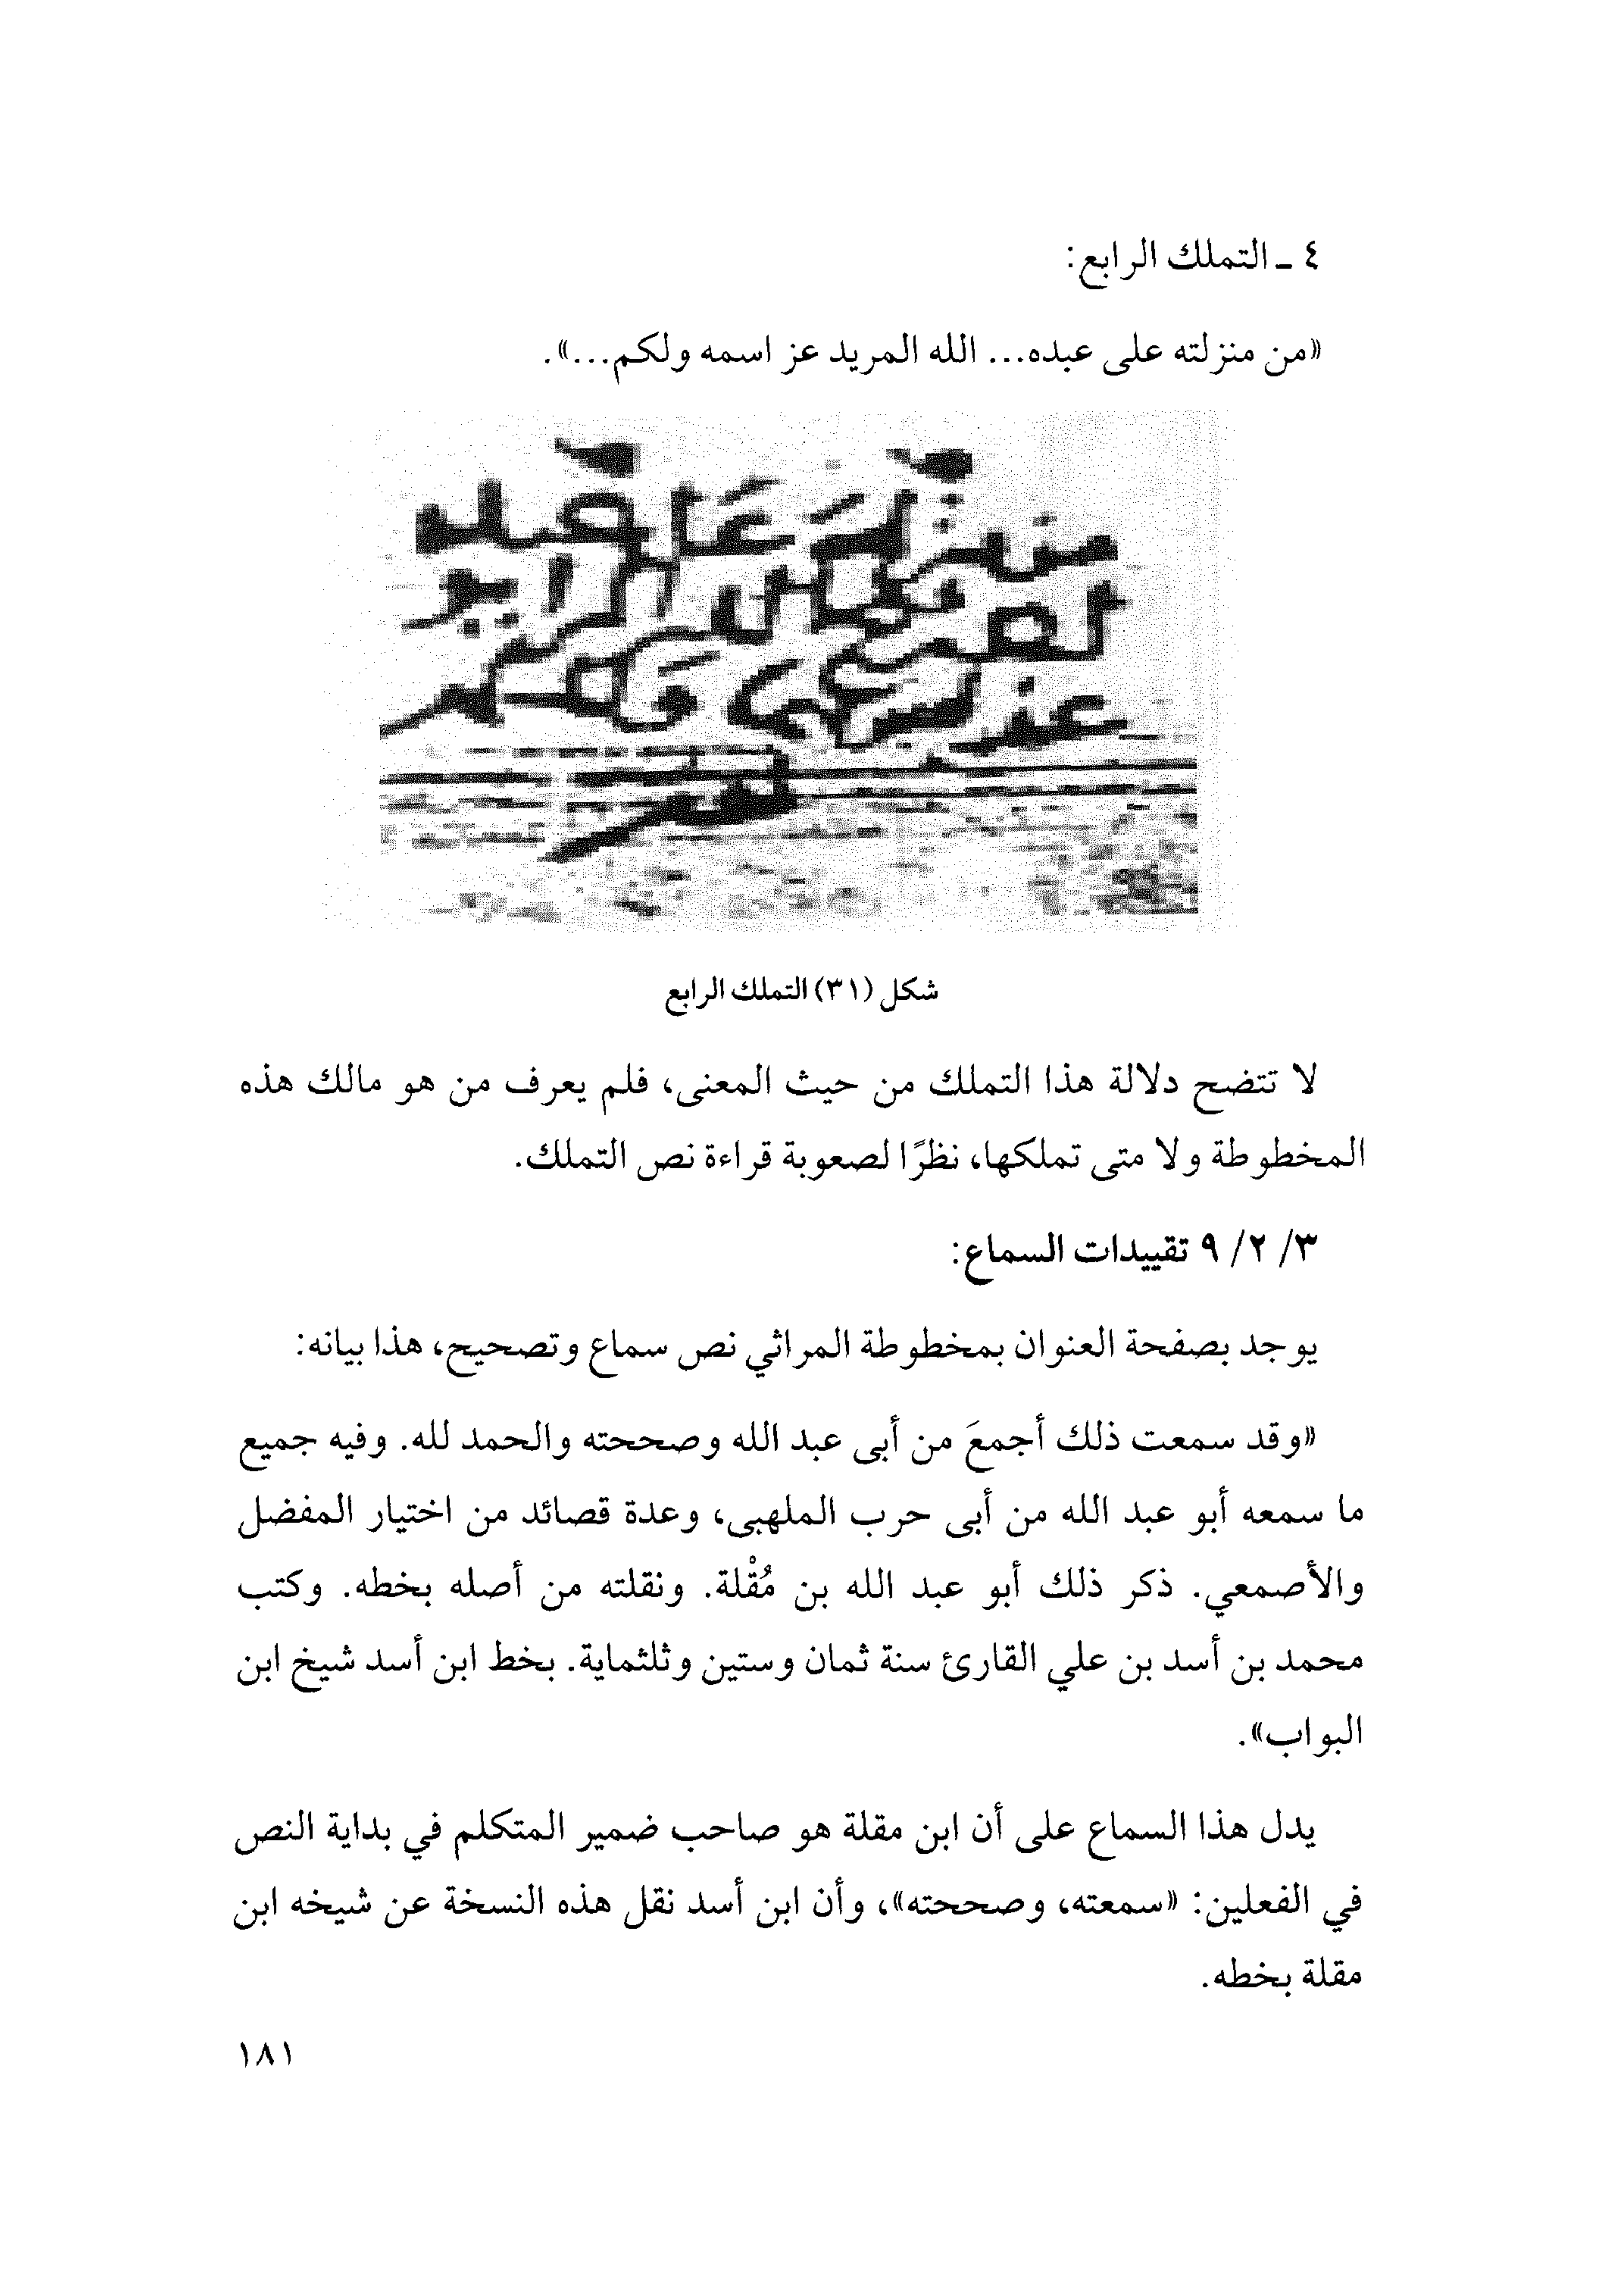 ٤ ـ التملك الرابع:
«من منزلته على عبده... الله المريد عز اسمه ولكم...».
شكل (٣١) التملك الرابع
لا تتضح دلالة هذا التملك من حيث المعنى، فلم يعرف من هو مالك هذه
المخطوطة ولا متى تملكها، نظرًا لصعوبة قراءة نص التملك.
٣/ ٢/ ٩ تقييدات السماع:
يوجد بصفحة العنوان بمخطوطة المراثي نص سماع وتصحيح، هذا بيانه:
«وقد سمعت ذلك أجمعَ من أبى عبد الله وصححته والحمد لله. وفيه جميع
ما سمعه أبو عبد الله من أبى حرب الملهبى، وعدة قصائد من اختيار المفضل
والأصمعي. ذكر ذلك أبو عبد الله بن مُقْلة. ونقلته من أصله بخطه. وكتب
محمد بن أسد بن علي القارئ سنة ثمان وستين وثلثماية. بخط ابن أسد شيخ ابن
البواب».
يدل هذا السماع على أن ابن مقلة هو صاحب ضمير المتكلم في بداية النص
في الفعلين: «سمعته، وصححته»، وأن ابن أسد نقل هذه النسخة عن شيخه ابن
مقلة بخطه.
١٨١